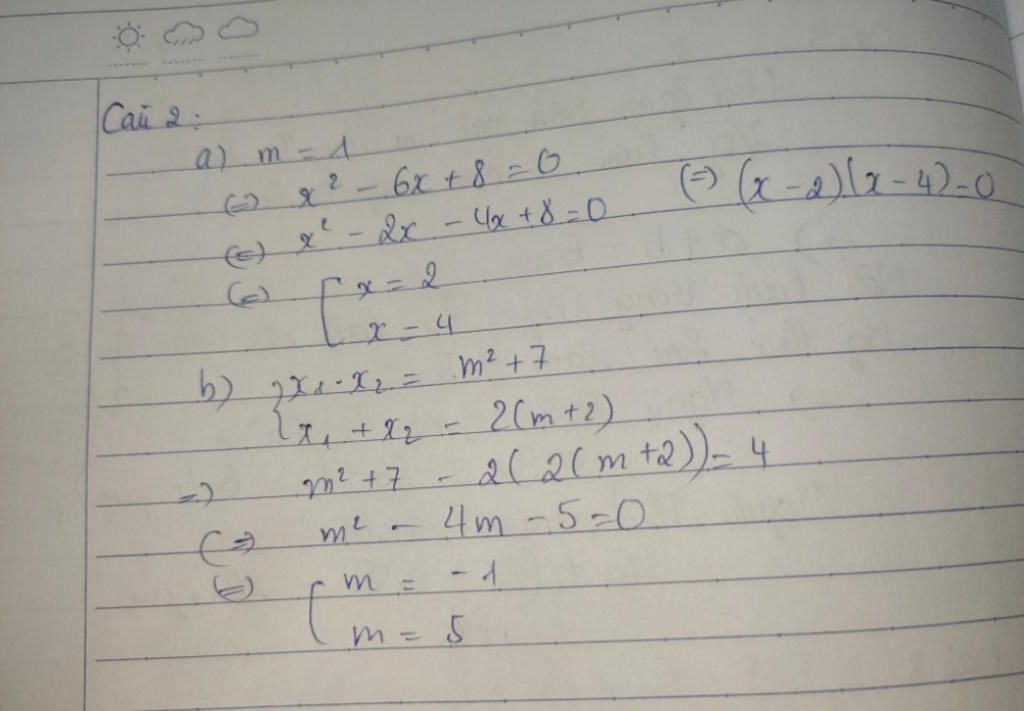 Câu 2:
a) m = 1
(=) x² - 6x + 8 = 0
(=) x² - 2x - 4x + 8 = 0 (=) (x - 2)(x - 4) = 0
(=) [ x = 2
x = 4
b) { x₁ . x₂ = m² + 7
x₁ + x₂ = 2(m + 2)
=) m² + 7 - 2( 2( m + 2)) = 4
(=) m² - 4m - 5 = 0
(=) [ m = - 1
m = 5